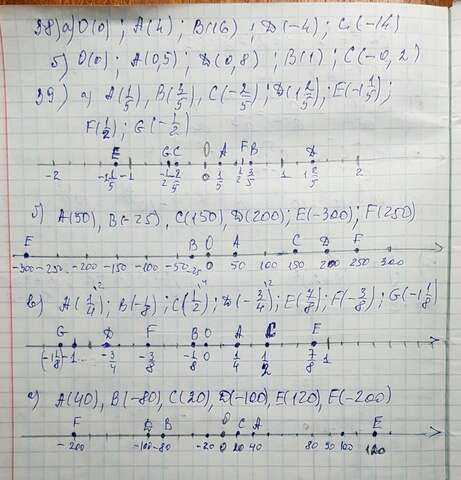 38) а) O(0) ; A(4) ; B(16) ; D(-4) ; C(-14)
б) O(0) ; A(0,5) ; D(0,8) ; B(1) ; C(-0,2)
39) а) A(1/5), B(3/5), C(-2/5) ; D(1 2/5) ; E(-1 1/5) ;
F(1/2) ; G(-1/2)
E G C O A F B D
-2 -1 1/5 -1 -1/2 -2/5 0 1/5 1/2 3/5 1 1 2/5 2
б) A(50), B(-25), C(150), D(200) ; E(-300) ; F(250)
E B O A C D F
-300 -250 -200 -150 -100 -50 -25 0 50 100 150 200 250 300
в) A(1/4) ; B(-1/8) ; C(1/2) ; D(-3/4) ; E(7/8) ; F(-3/8) ; G(-1 1/8)
G D F B O A C E
(-1 1/8) -1 -3/4 -3/8 -1/8 0 1/4 1/2 7/8 1
г) A(40), B(-80), C(20), D(-100), E(120), F(-200)
F D B O C A E
-200 -100 -80 -20 0 20 40 80 90 100 120